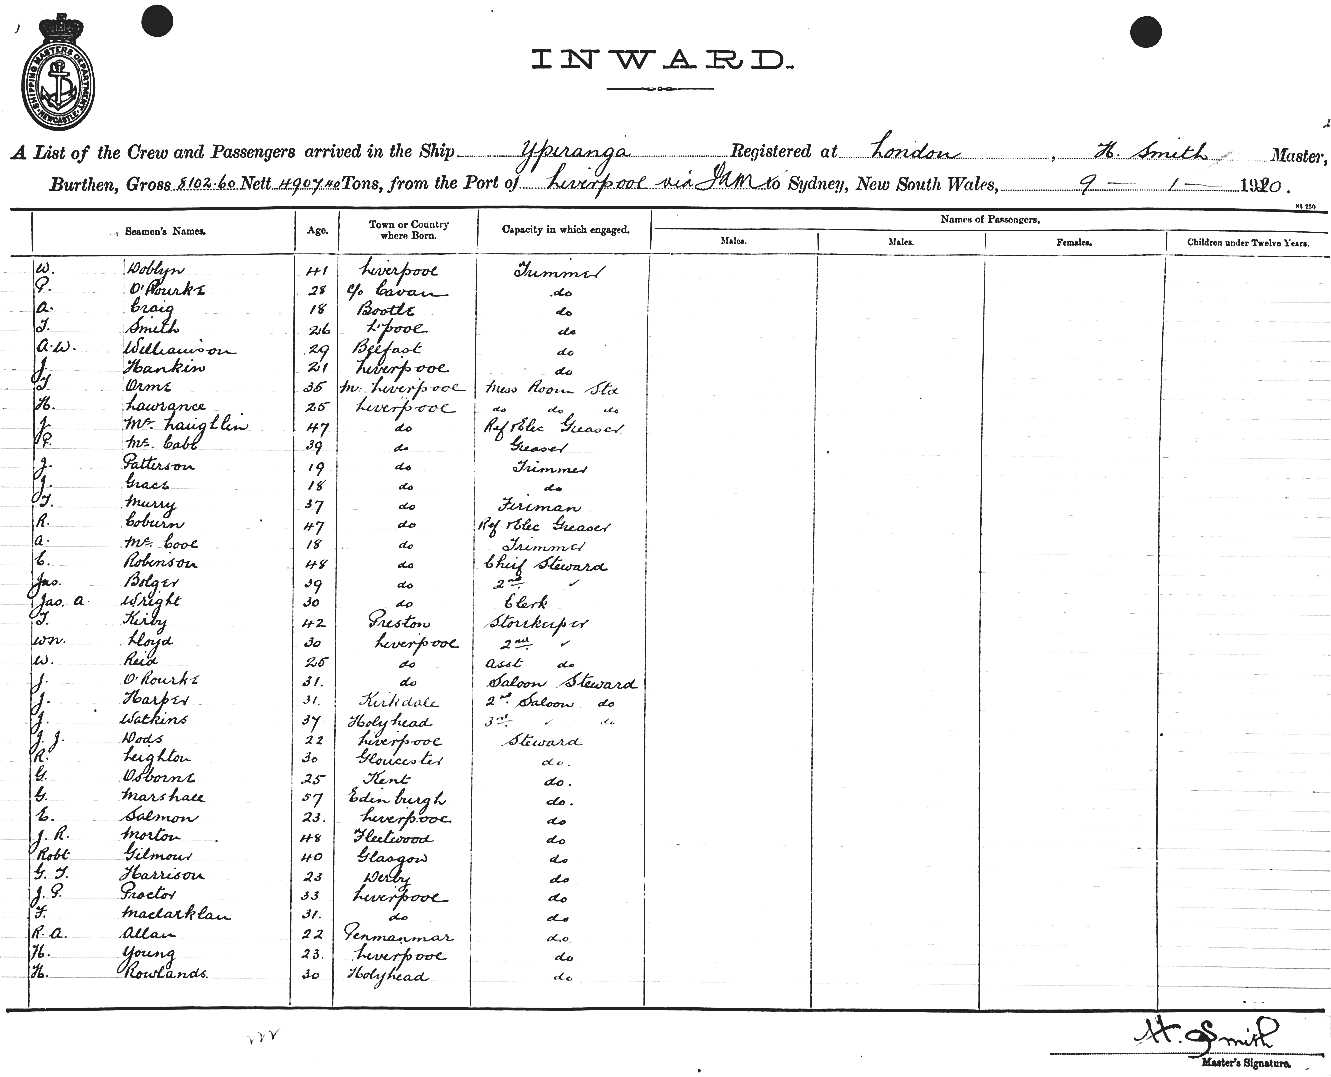 SHIPPING MASTERS DEPARTMENT. NEWCASTLE
INWARD.
A List of the Crew and Passengers arrived in the Ship Ypiranga Registered at London, H. Smith Master,
Burthen, Gross 8102.60 Nett 4907 Tons, from the Port of Liverpool via to Sydney, New South Wales, 9 - 1 - 1920.
Seamen's Names. Age. Town or Country where Born. Capacity in which engaged. Names of Passengers.
Males. Males. Females. Children under Twelve Years.
W. Woblyn 41 Liverpool Trimmer
P. O'Rourke 28 c/o Cavan do
A. Craig 18 Bootle do
T. Smith 26 L'pool do
A.W. Williamson 29 Belfast do
J. Hankin 21 Liverpool do
T. Orme 35 Liverpool Mess Room Std
H. Lawrance 25 Liverpool do do do
J. Mc. Laughlin 47 do Ref & Elec Greaser
P. Mc. Cabe 39 do Greaser
J. Patterson 19 do Trimmer
J. Grace 18 do do
T. Murry 37 do Fireman
R. Coburn 47 do Ref & Elec Greaser
A. Mc. Cool 18 do Trimmer
C. Robinson 48 do Chief Steward
Jas. Bolger 39 do 2nd ✓
Jas. A. Wright 30 do Clerk
T. Kirby 42 Preston Storekeeper
Wm. Lloyd 30 Liverpool 2nd ✓
W. Reid 25 do Asst do
J. O'Rourke 31. do Saloon Steward
J. Harper 31. Kirkdale 2nd Saloon do
J. Watkins 37 Holyhead 3rd ✓ do
J. J. Woods 22 Liverpool Steward
R. Leighton 30 Gloucester do.
G. Osborne 25 Kent do.
G. Marshall 57 Edinburgh do.
E. Salmon 23. Liverpool do
J. R. Morton 48 Fleetwood do
Robt Gilmour 40 Glasgow do
G. T. Harrison 23 Derby do
J. P. Proctor 33 Liverpool do
F. Maclarklan 31. do do
R. A. Allan 22 Penmanmar do
H. Young 23. Liverpool do
H. Rowlands. 30 Holyhead do
H. Smith
Master's Signature.